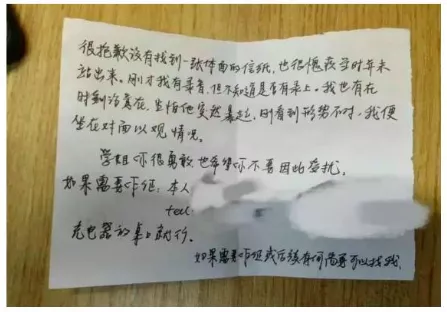 很抱歉没有找到一张体面的信纸，也很愧疚当时并未
站出来。刚才我有录着，但不知道是否有录上。我也有在
时刻注意在，生怕他突然暴起，刚看到形势不对，我便
坐在对面以观情况。
学姐你很勇敢，也希望你不要因此受扰，
如果需要作证：本人
tell:
充电器的桌上就行。
如果需要作证或后续有何需要可以找我，